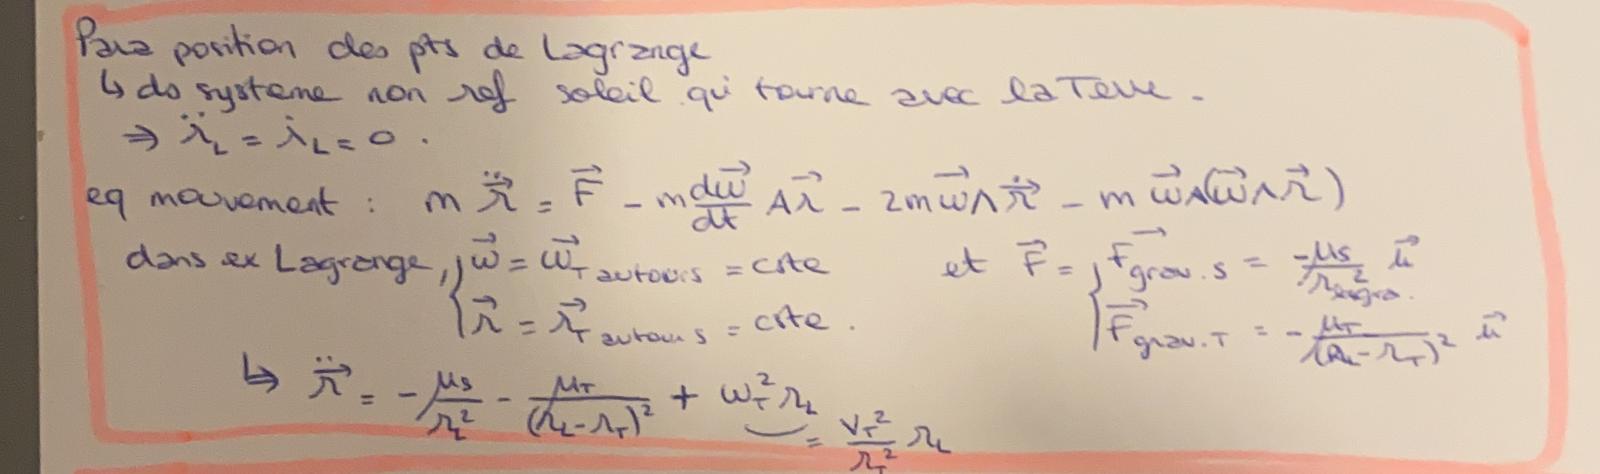 Para position des pts de Lagrange
↳ ds système non ref soleil qui tourne avec la Terre.
⇒ r̈_L = ṙ_L = 0.
eq mouvement : m r̈⃗ = F⃗ - m dω⃗/dt ∧ r⃗ - 2m ω⃗ ∧ ṙ⃗ - m ω⃗ ∧ (ω⃗ ∧ r⃗)
dans ex Lagrange, { ω⃗ = ω⃗_T autours = cste et F⃗ = { F⃗_grav.S = -μs/r²_Lagra. u⃗
r⃗ = r⃗_T autour s = cste. F⃗_grav.T = - μ_T/(r_L - r_T)² u⃗
↳ r̈⃗ = - μs/r_L² - μ_T/(r_L - r_T)² + ω_T² r_L
= v_T²/r_T² r_L